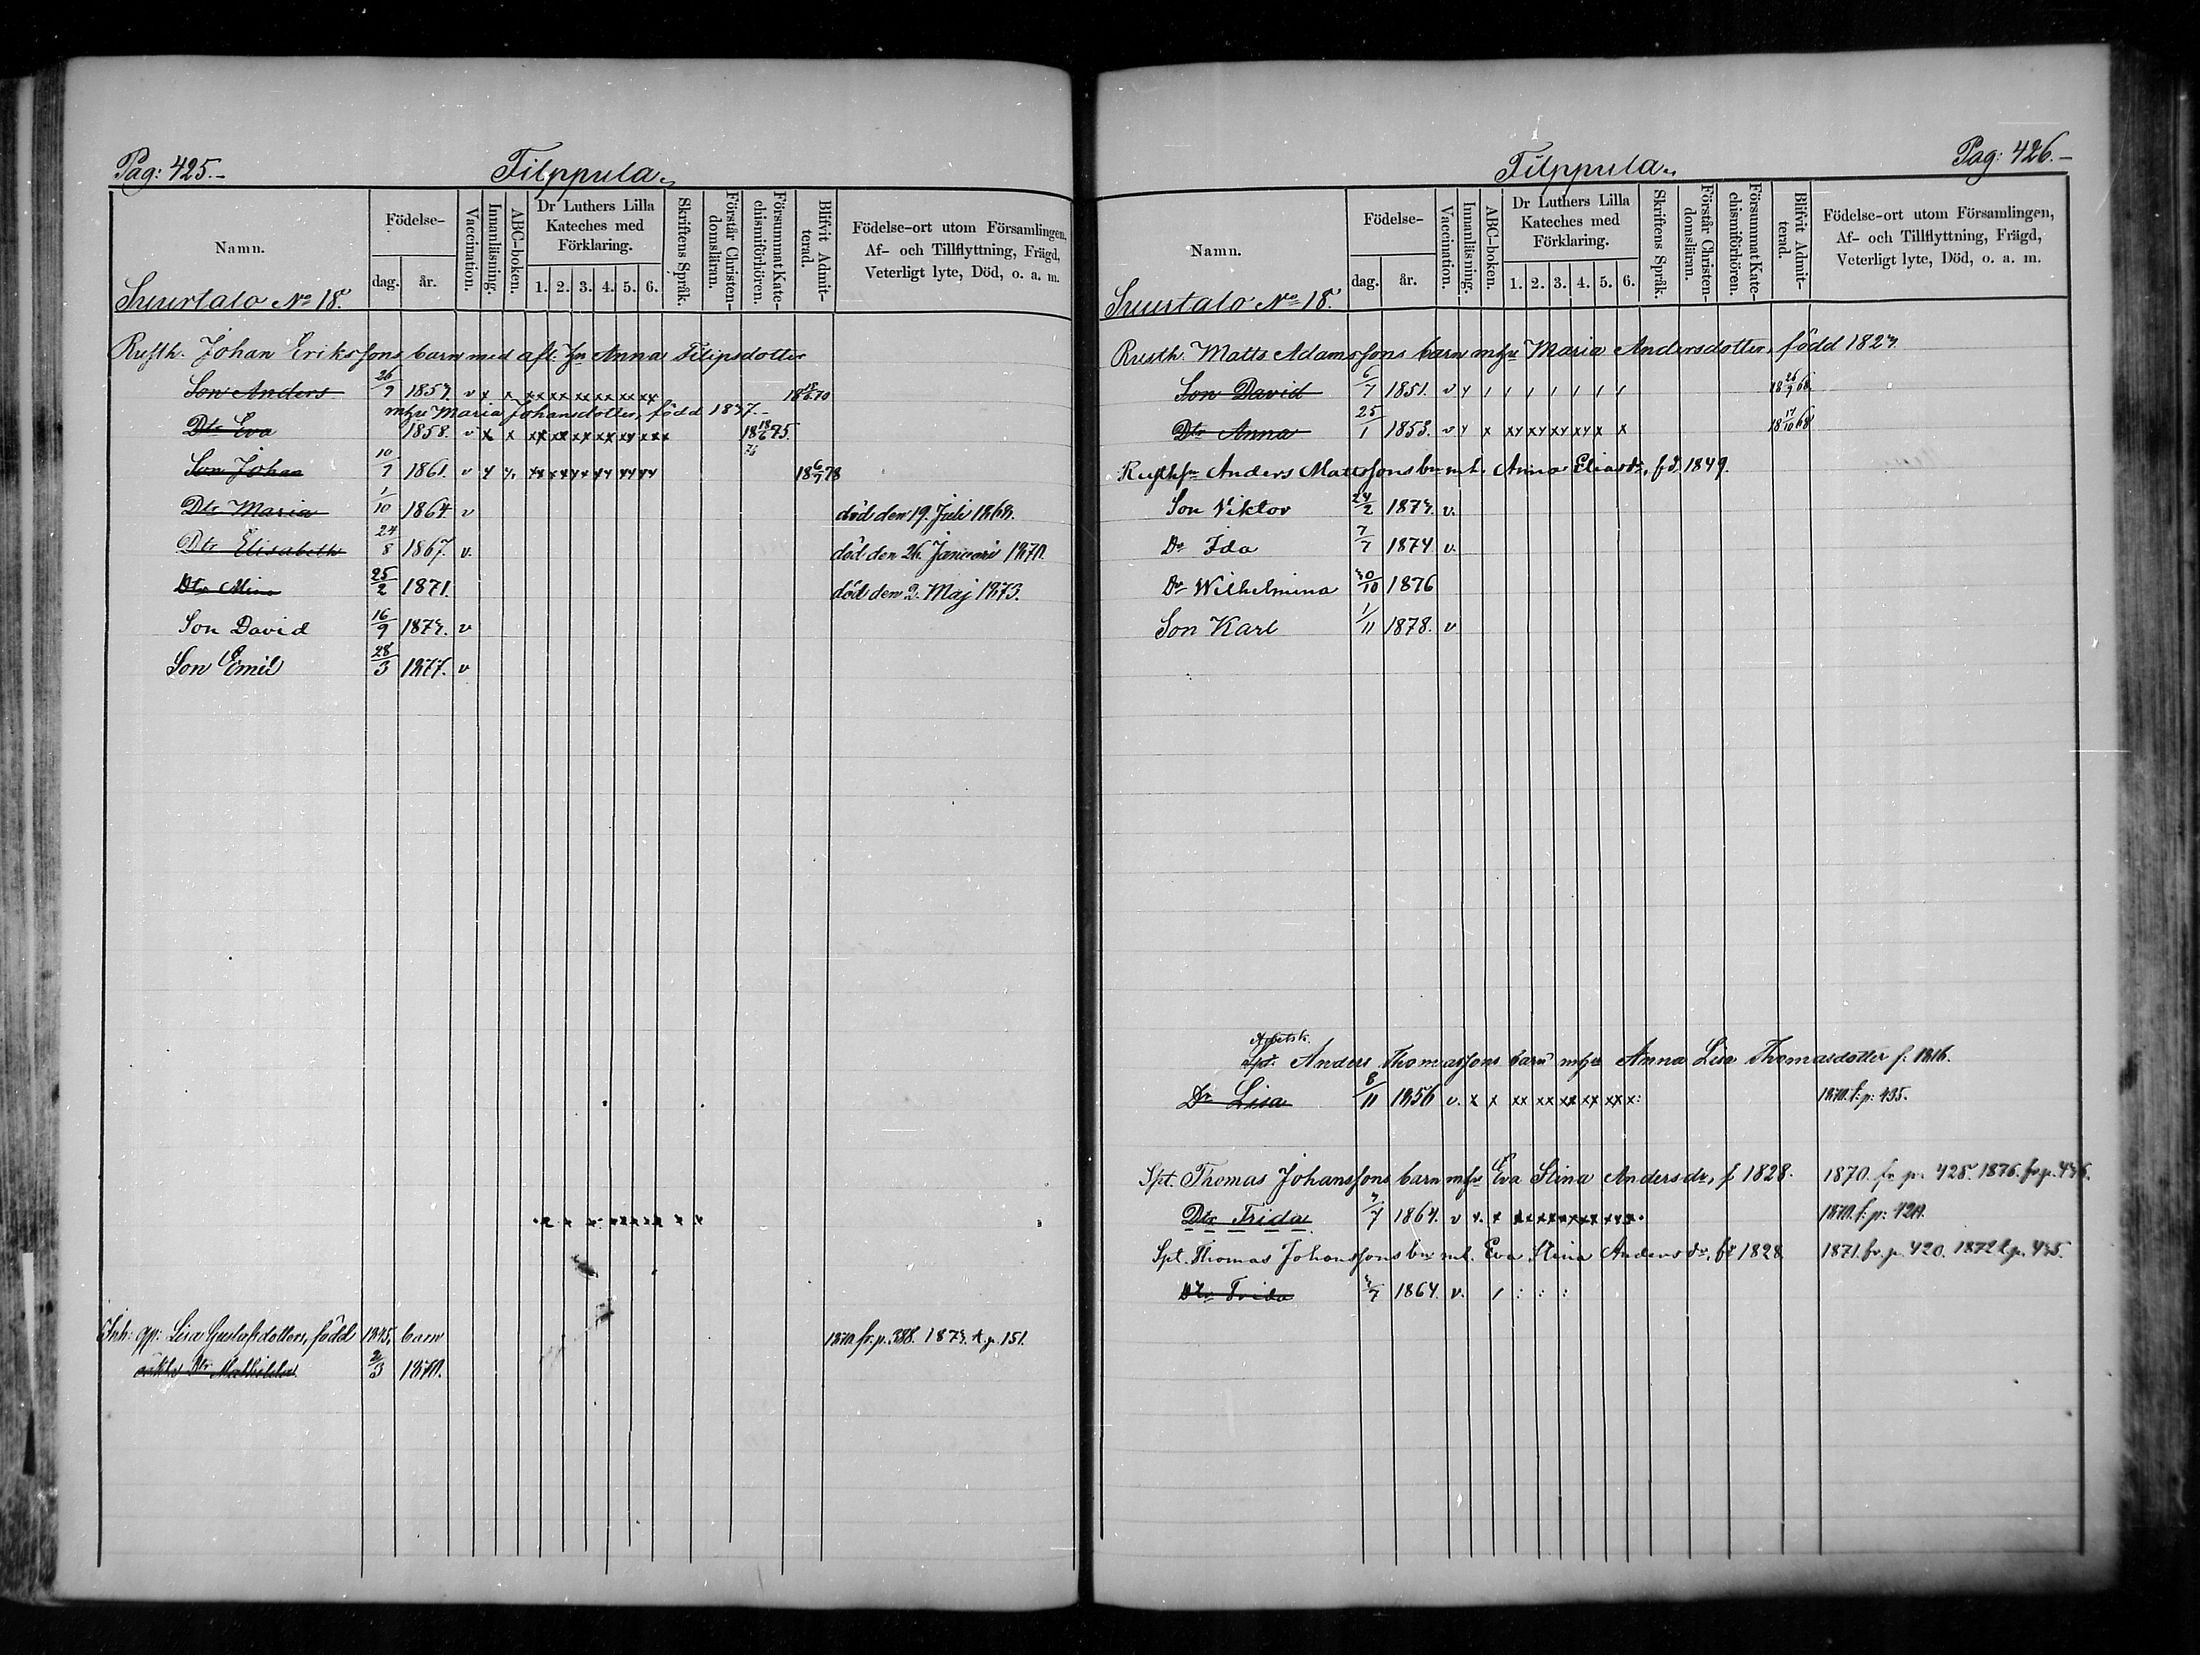 Pag: 425.-
Filppula.
Namn.
Födelse-
dag.
år.
Vaccination.
Innanläsning.
ABC-boken.
Dr Luthers Lilla
Kateches med
Förklaring.
1. 2. 3. 4. 5. 6.
Skriftens Språk.
Förstår Christen-
domsläran.
Försummat Kate-
chismiförhören.
Blifvit Admit-
terad.
Födelse-ort utom Församlingen,
Af- och Tillflyttning, Frägd,
Veterligt lyte, Död, o. a. m.
Suurtalo No 18.
Rusth. Johan Erikssons barn med afl. Hu Anna Filipsdotter
Son Anders 26/9 1857. v x x xx xx xx xx xx xx
mhu Maria Johansdotter, född 1837.-
Dtr Eva 1858. v x x xx xx xx xx xx xxx 18 18/6 75.
Son Johan 10/7 1861. v 18 6/7 78
Dtr Maria 1/10 1864 v död den 19. Juli 1868.
Dtr Elisabeth 24/8 1867. v. död den 26. Januari 1870.
Dtr Mina 25/2 1871. död den 2. Maj 1873.
Son David 16/9 1873. v
Son Emil 28/3 1877. v
Inh: qp: Lisa Gustafsdotters, född 1845, barn 1870 fr. p. 388. 1873. t. p. 151.
oäkta Dtr Mathilda 2/3 1870.
Pag: 426.-
Filppula.
Namn.
Födelse-
dag.
år.
Vaccination.
Innanläsning.
ABC-boken.
Dr Luthers Lilla
Kateches med
Förklaring.
1. 2. 3. 4. 5. 6.
Skriftens Språk.
Förstår Christen-
domsläran.
Försummat Kate-
chismiförhören.
Blifvit Admit-
terad.
Födelse-ort utom Församlingen,
Af- och Tillflyttning, Frägd,
Veterligt lyte, Död, o. a. m.
Suurtalo No 18.
Rusth. Matts Adamssons barn mhu Maria Andersdotter, född 1823.
Son David 6/7 1851. v 18 26/9 68
Dtr Anna 25/1 1853. v 18 17/10 68
Rusthfr Anders Mattssons bn mh. Anna Eliasdr, fd 1849.
Son Viktor 24/2 1873. v.
Dr Ida 7/7 1874 v.
Dr Wilhelmina 30/10 1876
Son Karl 1/11 1878. v
Arbetsk.
Spt. Anders Thomassons barn mhu Anna Lisa Thomasdotter f. 1816.
Dr Lisa 8/11 1856 v. x x xx xx xx xx xx x: 1870. t: p: 435.
Spt. Thomas Johanssons barn mhu Eva Stina Andersdr, f 1828. 1870. fr p. 428. 1876. fr p. 436.
Dtr Frida 3/7 1864. v x. x
Spt. Thomas Johanssons bn mh. Eva Stina Andersdr, fd 1828 1871. fr. p. 420. 1872 t. p. 435.
Dtr Frida 3/7 1864. v.